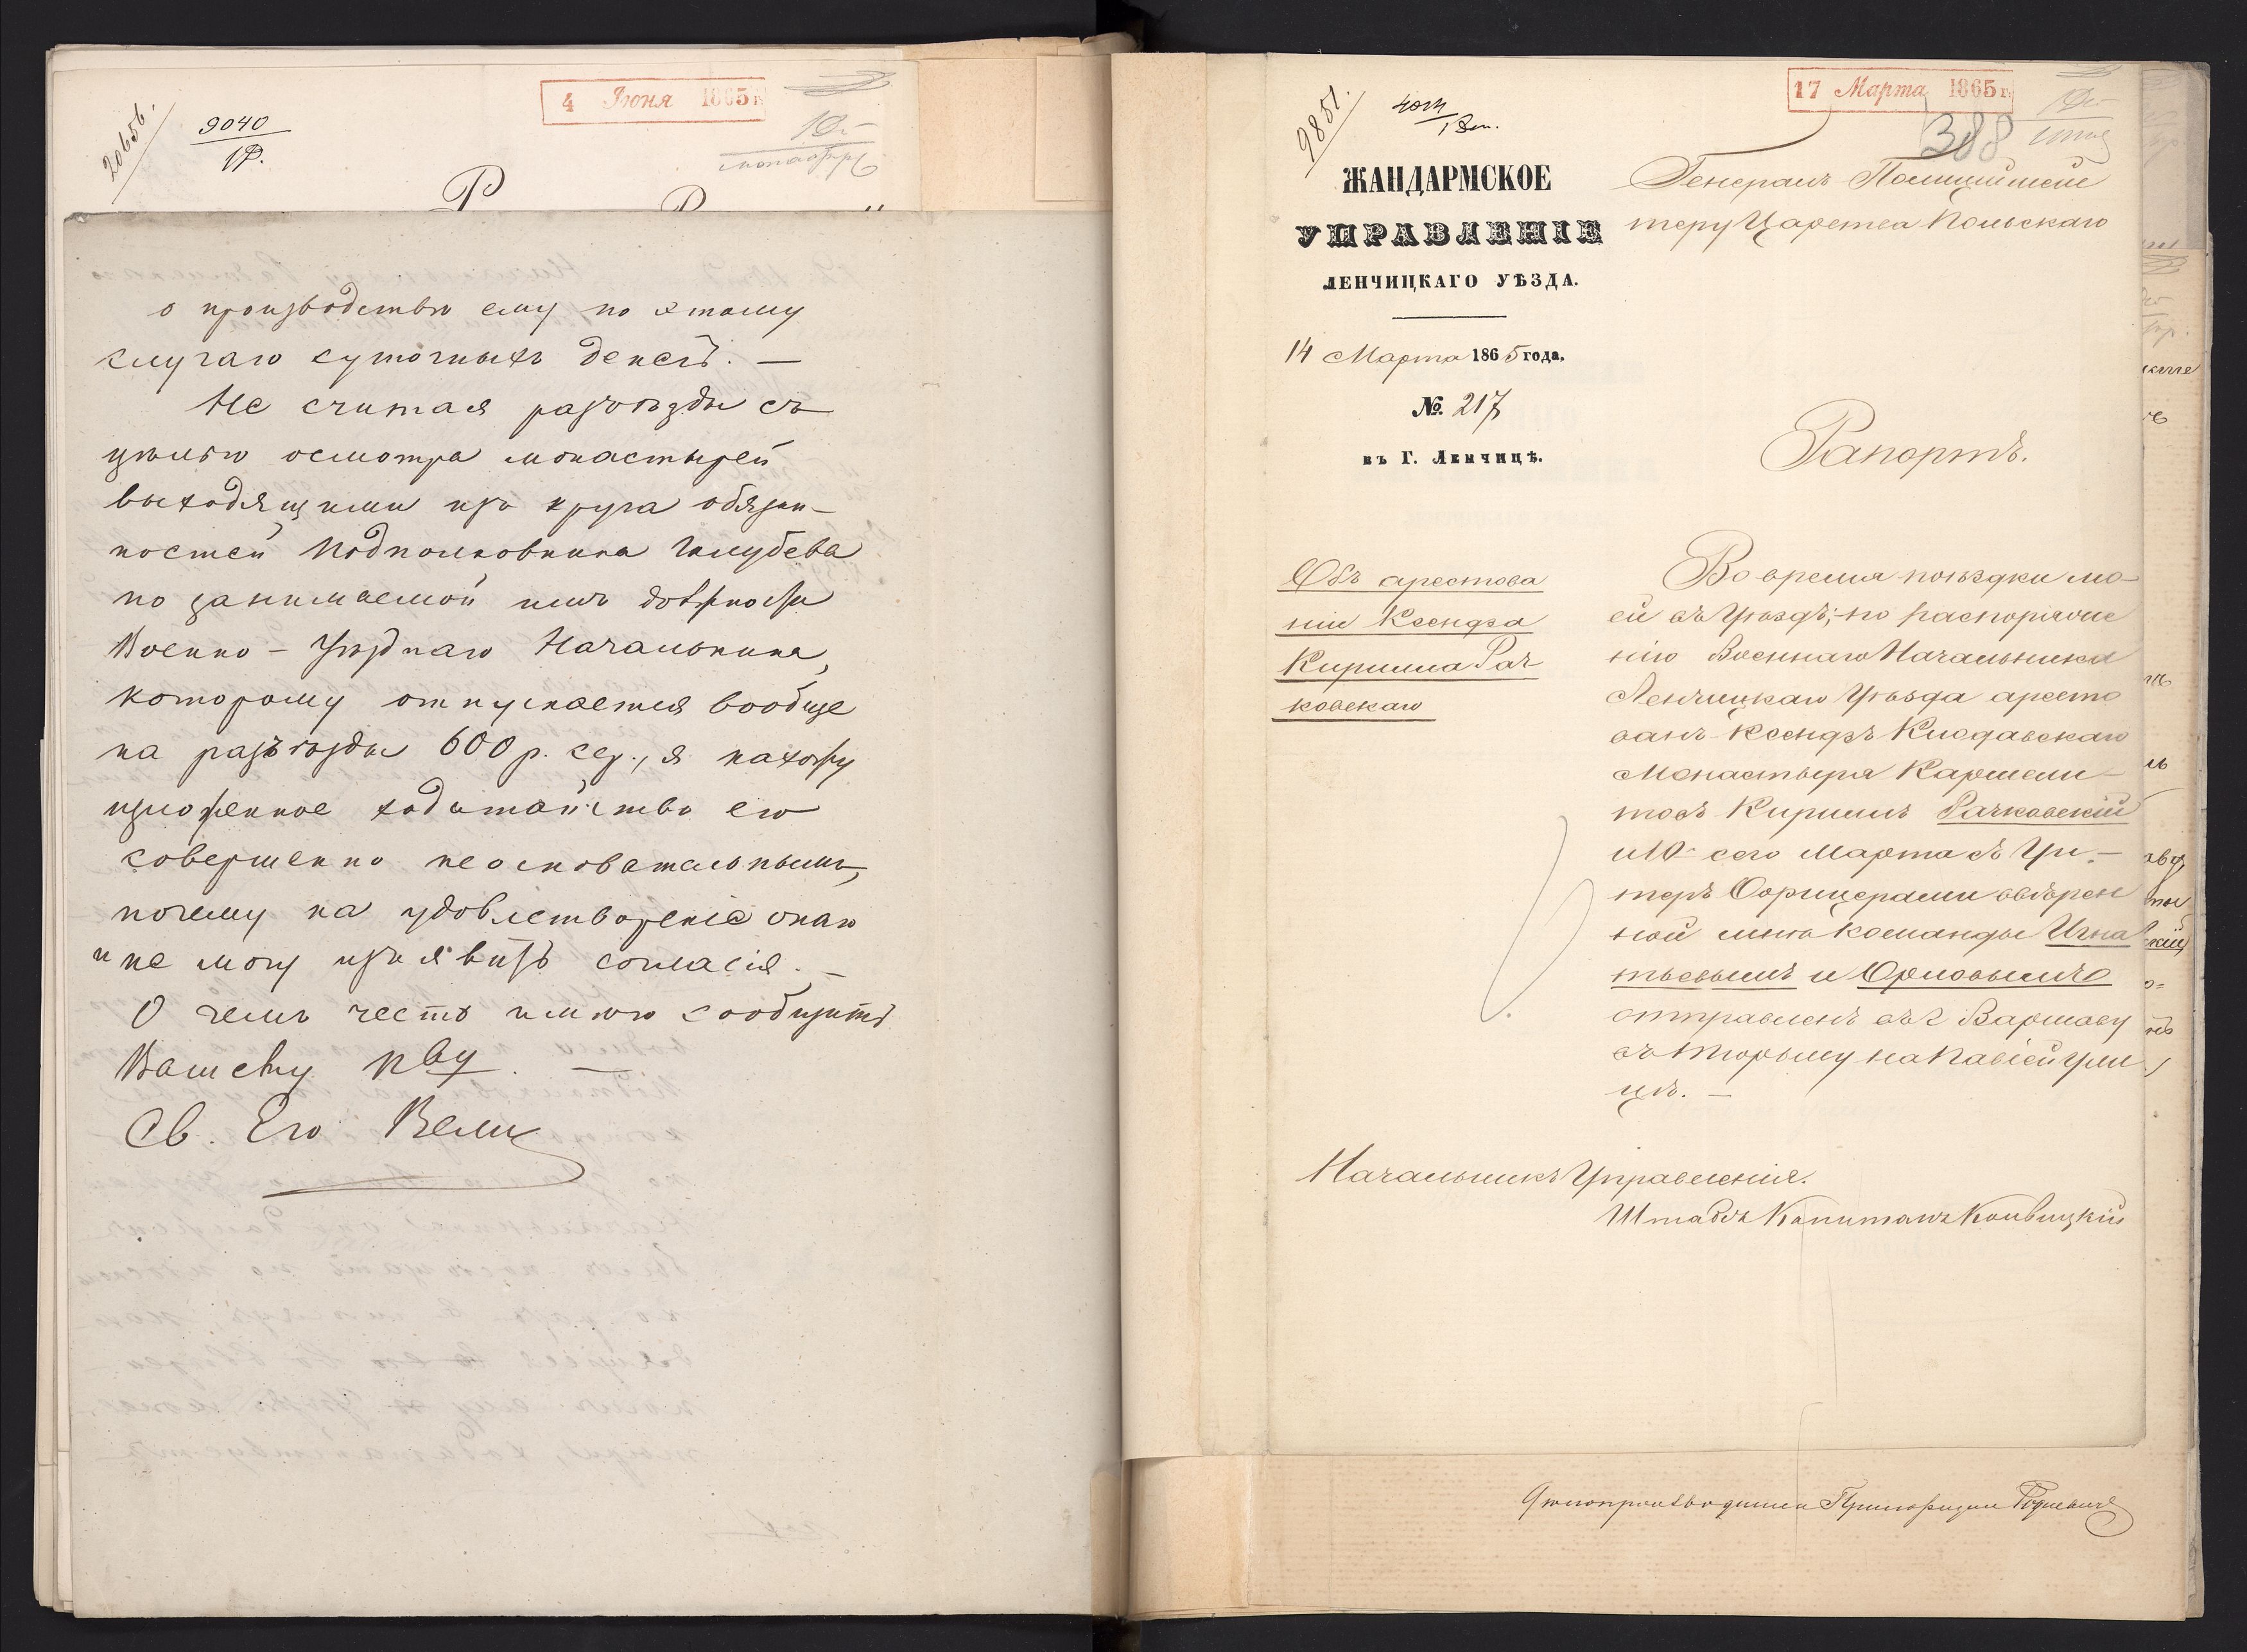 20656.
9040
1Р.
4 Июня 1865 г.
о производствѣ ему по этому
случаю суточныхъ денегъ. —
Не считая разъѣзды съ
цѣлью осмотра монастырей
выходящими изъ круга обязан-
ностей Подполковника Голубева
по занимаемой имъ должности
Военно-Уѣзднаго Начальника,
которому отпускается вообще
на разъѣзды 600 р. сер., я нахожу
изложенное ходатайство его
совершенно неосновательнымъ,
почему на удовлетвореніе онаго
и не могу изъявить согласія. —
О чемъ честь имѣю сообщить
Вашему пву. —
Св. Его Вели
9851.
17 Марта 1865 г.
388
ЖАНДАРМСКОЕ
УПРАВЛЕНІЕ
ЛЕНЧИЦКАГО УѢЗДА.
14 Марта 1865 года.
№. 217
въ Г. Ленчицѣ.
Генералъ-Полицiймей
теру Царства Польскаго
Рапортъ.
Объ арестова
ніи Ксендза
Кирилла Рач
ковскаго
Во время поѣздки мо-
ей въ Уѣздъ, по распоряже
нію Военнаго Начальника
Ленчицкаго Уѣзда аресто
ванъ Ксендзъ Клодавскаго
Монастыря Кармели-
товъ Кириллъ Рачковскій
и 10 сего Марта съ Ун-
теръ Офицерами ввѣрен
ной мнѣ команды Игна
тьевымъ и Орловымъ
отправленъ въ г Варшаву
въ тюрьму на Павіей ули
цѣ. —
Начальникъ Управленія.
Штабсъ Капитанъ Конвицкій
Дѣлопроизводитель